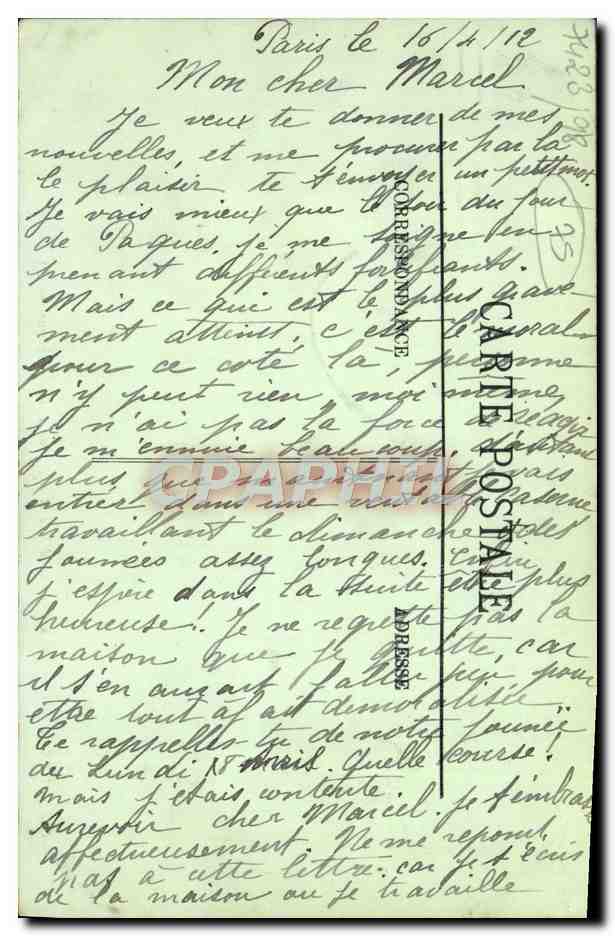 Paris le 16/4/12
Mon cher Marcel
Je veux te donner de mes
nouvelles, et me procurer par la
le plaisir te t'envoyer un petit mot.
Je vais mieux que le jour du jour
de Paques. je me soigne en
prenant diffients fortifiants.
Mais ce qui est le plus grave
ment atteint, c'est le moral
pour ce coté la, personne
n'y peut rien, moi même
je n'ai pas la force de réagir
Je m'ennuie beaucoup, d'autant
plus que maintenant je vais
entrer dans une caserne
travaillant le dimanche et des
journées assez longues. Enfin
j'espère dans la suite être plus
heureuse!. Je ne regrette pas la
maison que je quitte, car
il s'en aurait fallu peu pour
être tout a fait demoralisée
Te rappelles tu de notre journée
du Lundi 18 mars. Quelle course!
mais j'étais contente.
Aurevoir cher Marcel. Je t'embrasse
affectueusement. Ne me repond
pas à cette lettre. car je t'écris
de la maison ou je travaille
CORRESPONDANCE
CARTE POSTALE
ADRESSE
75
CPAPHIL